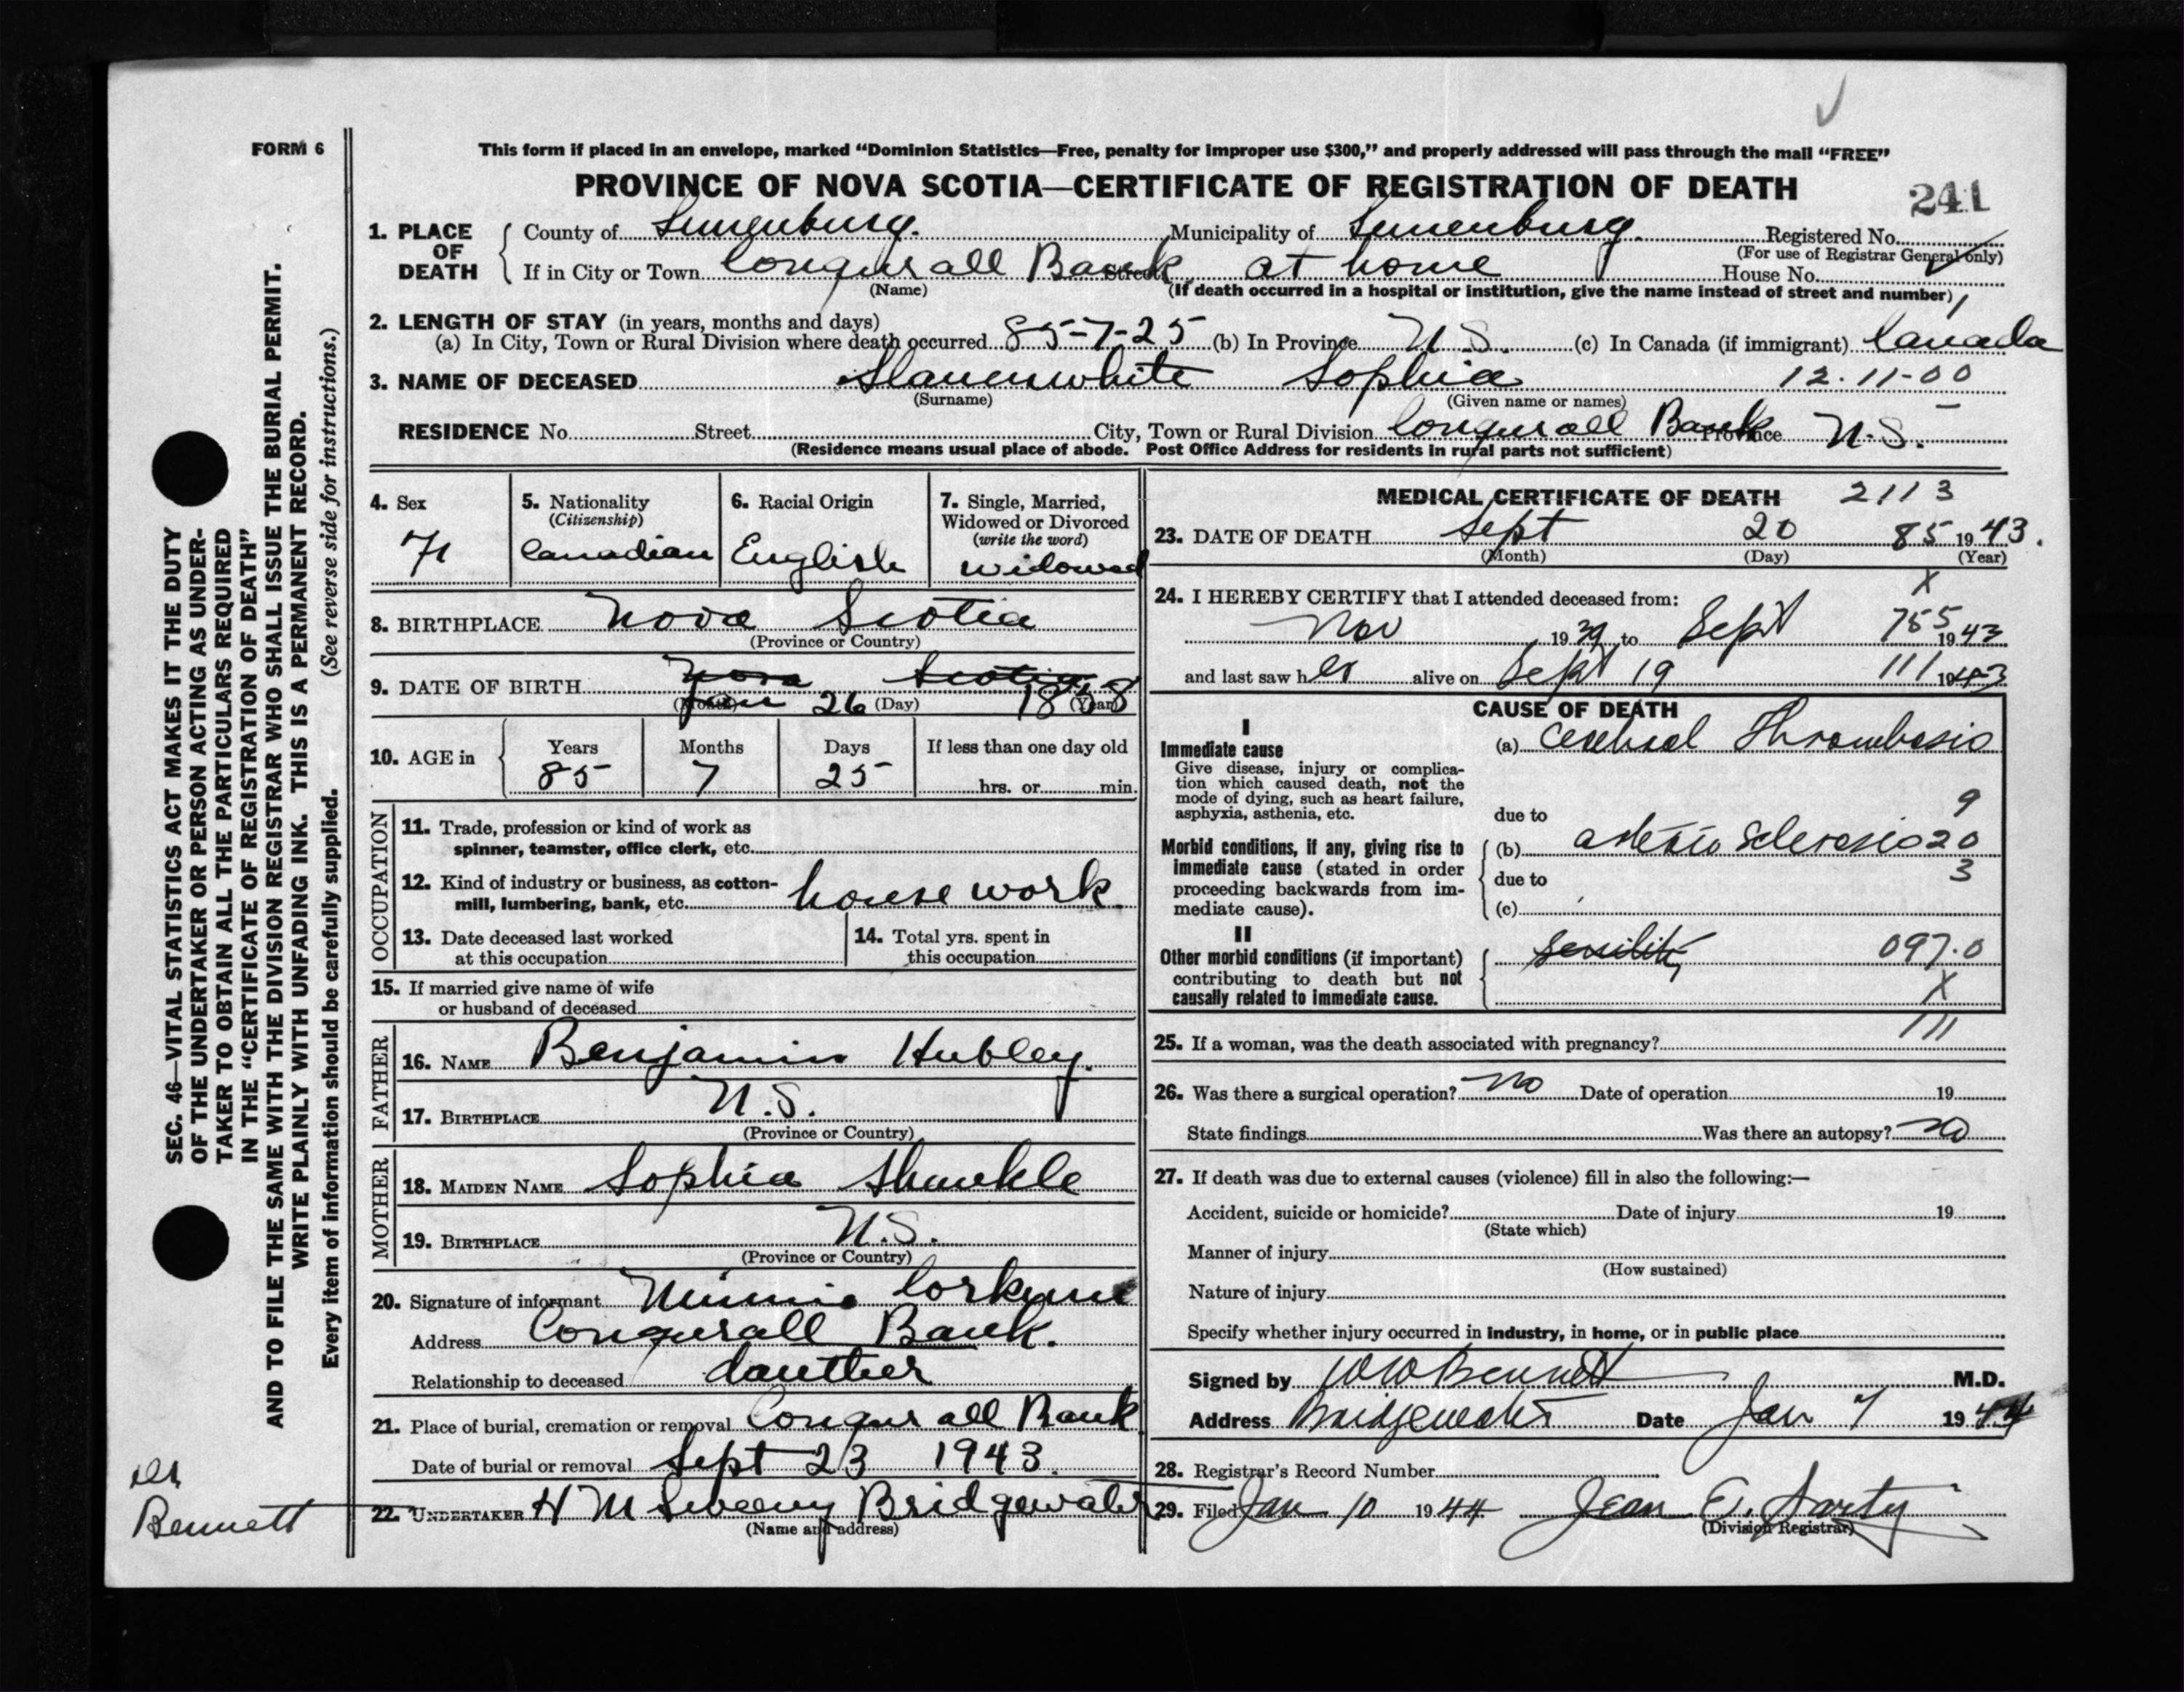 FORM 6
This form if placed in an envelope, marked “Dominion Statistics—Free, penalty for improper use $300,” and properly addressed will pass through the mail “FREE”
PROVINCE OF NOVA SCOTIA—CERTIFICATE OF REGISTRATION OF DEATH
241
1. PLACE OF DEATH
County of Lunenburg. Municipality of Lunenburg. Registered No.
(For use of Registrar General only)
If in City or Town Conquerall Bank Street at home House No.
(Name) (If death occurred in a hospital or institution, give the name instead of street and number)
2. LENGTH OF STAY (in years, months and days)
(a) In City, Town or Rural Division where death occurred 85-7-25 (b) In Province N.S. (c) In Canada (if immigrant) Canada
3. NAME OF DECEASED Slauenwhite Sophia 12-11-00
(Surname) (Given name or names)
RESIDENCE No. Street City, Town or Rural Division Conquerall Bank Province N.S.
(Residence means usual place of abode. Post Office Address for residents in rural parts not sufficient)
4. Sex
5. Nationality (Citizenship)
Canadian
6. Racial Origin
English
7. Single, Married, Widowed or Divorced (write the word)
widowed
8. BIRTHPLACE Nova Scotia
(Province or Country)
9. DATE OF BIRTH Nova Scotia
Jan 26 1858
(Month) (Day) (Year)
10. AGE in
Years Months Days If less than one day old
85 7 25 hrs. or min.
OCCUPATION
11. Trade, profession or kind of work as
spinner, teamster, office clerk, etc.
12. Kind of industry or business, as cotton-
mill, lumbering, bank, etc. house work
13. Date deceased last worked
at this occupation
14. Total yrs. spent in
this occupation
15. If married give name of wife
or husband of deceased
FATHER
16. NAME Benjamin Hubley.
17. BIRTHPLACE N.S.
(Province or Country)
MOTHER
18. MAIDEN NAME Sophia Shunkle
19. BIRTHPLACE N.S.
(Province or Country)
20. Signature of informant Minnie Corkum
Address Conquerall Bank.
Relationship to deceased dauther
21. Place of burial, cremation or removal Conquerall Bank
Date of burial or removal Sept 23 1943.
22. UNDERTAKER H M Sweeny Bridgewater
(Name and address)
MEDICAL CERTIFICATE OF DEATH 2113
23. DATE OF DEATH Sept 20 85 1943.
(Month) (Day) (Year)
24. I HEREBY CERTIFY that I attended deceased from: X
Nov 1939 to Sept 755 1943
and last saw her alive on Sept 19 111 1943
CAUSE OF DEATH
I
Immediate cause
Give disease, injury or complica-
tion which caused death, not the
mode of dying, such as heart failure,
asphyxia, asthenia, etc.
(a) Cerebral Thrombosis
due to 9
Morbid conditions, if any, giving rise to
immediate cause (stated in order
proceeding backwards from im-
mediate cause).
(b) arterio Sclerosis 20
due to 3
(c)
II
Other morbid conditions (if important)
contributing to death but not
causally related to immediate cause.
senility 097.0
X
111
25. If a woman, was the death associated with pregnancy?
26. Was there a surgical operation? no Date of operation 19
State findings Was there an autopsy? no
27. If death was due to external causes (violence) fill in also the following:—
Accident, suicide or homicide? Date of injury 19
(State which)
Manner of injury
(How sustained)
Nature of injury
Specify whether injury occurred in industry, in home, or in public place
Signed by W W Bennett M.D.
Address Bridgewater Date Jan 7 1944
28. Registrar's Record Number
29. Filed Jan 10 1944 Jean E. Sarty
(Division Registrar)
SEC. 46—VITAL STATISTICS ACT MAKES IT THE DUTY
OF THE UNDERTAKER OR PERSON ACTING AS UNDER-
TAKER TO OBTAIN ALL THE PARTICULARS REQUIRED
IN THE “CERTIFICATE OF REGISTRATION OF DEATH”
AND TO FILE THE SAME WITH THE DIVISION REGISTRAR WHO SHALL ISSUE THE BURIAL PERMIT.
WRITE PLAINLY WITH UNFADING INK. THIS IS A PERMANENT RECORD.
Every item of information should be carefully supplied. (See reverse side for instructions.)
Dr
Bennett